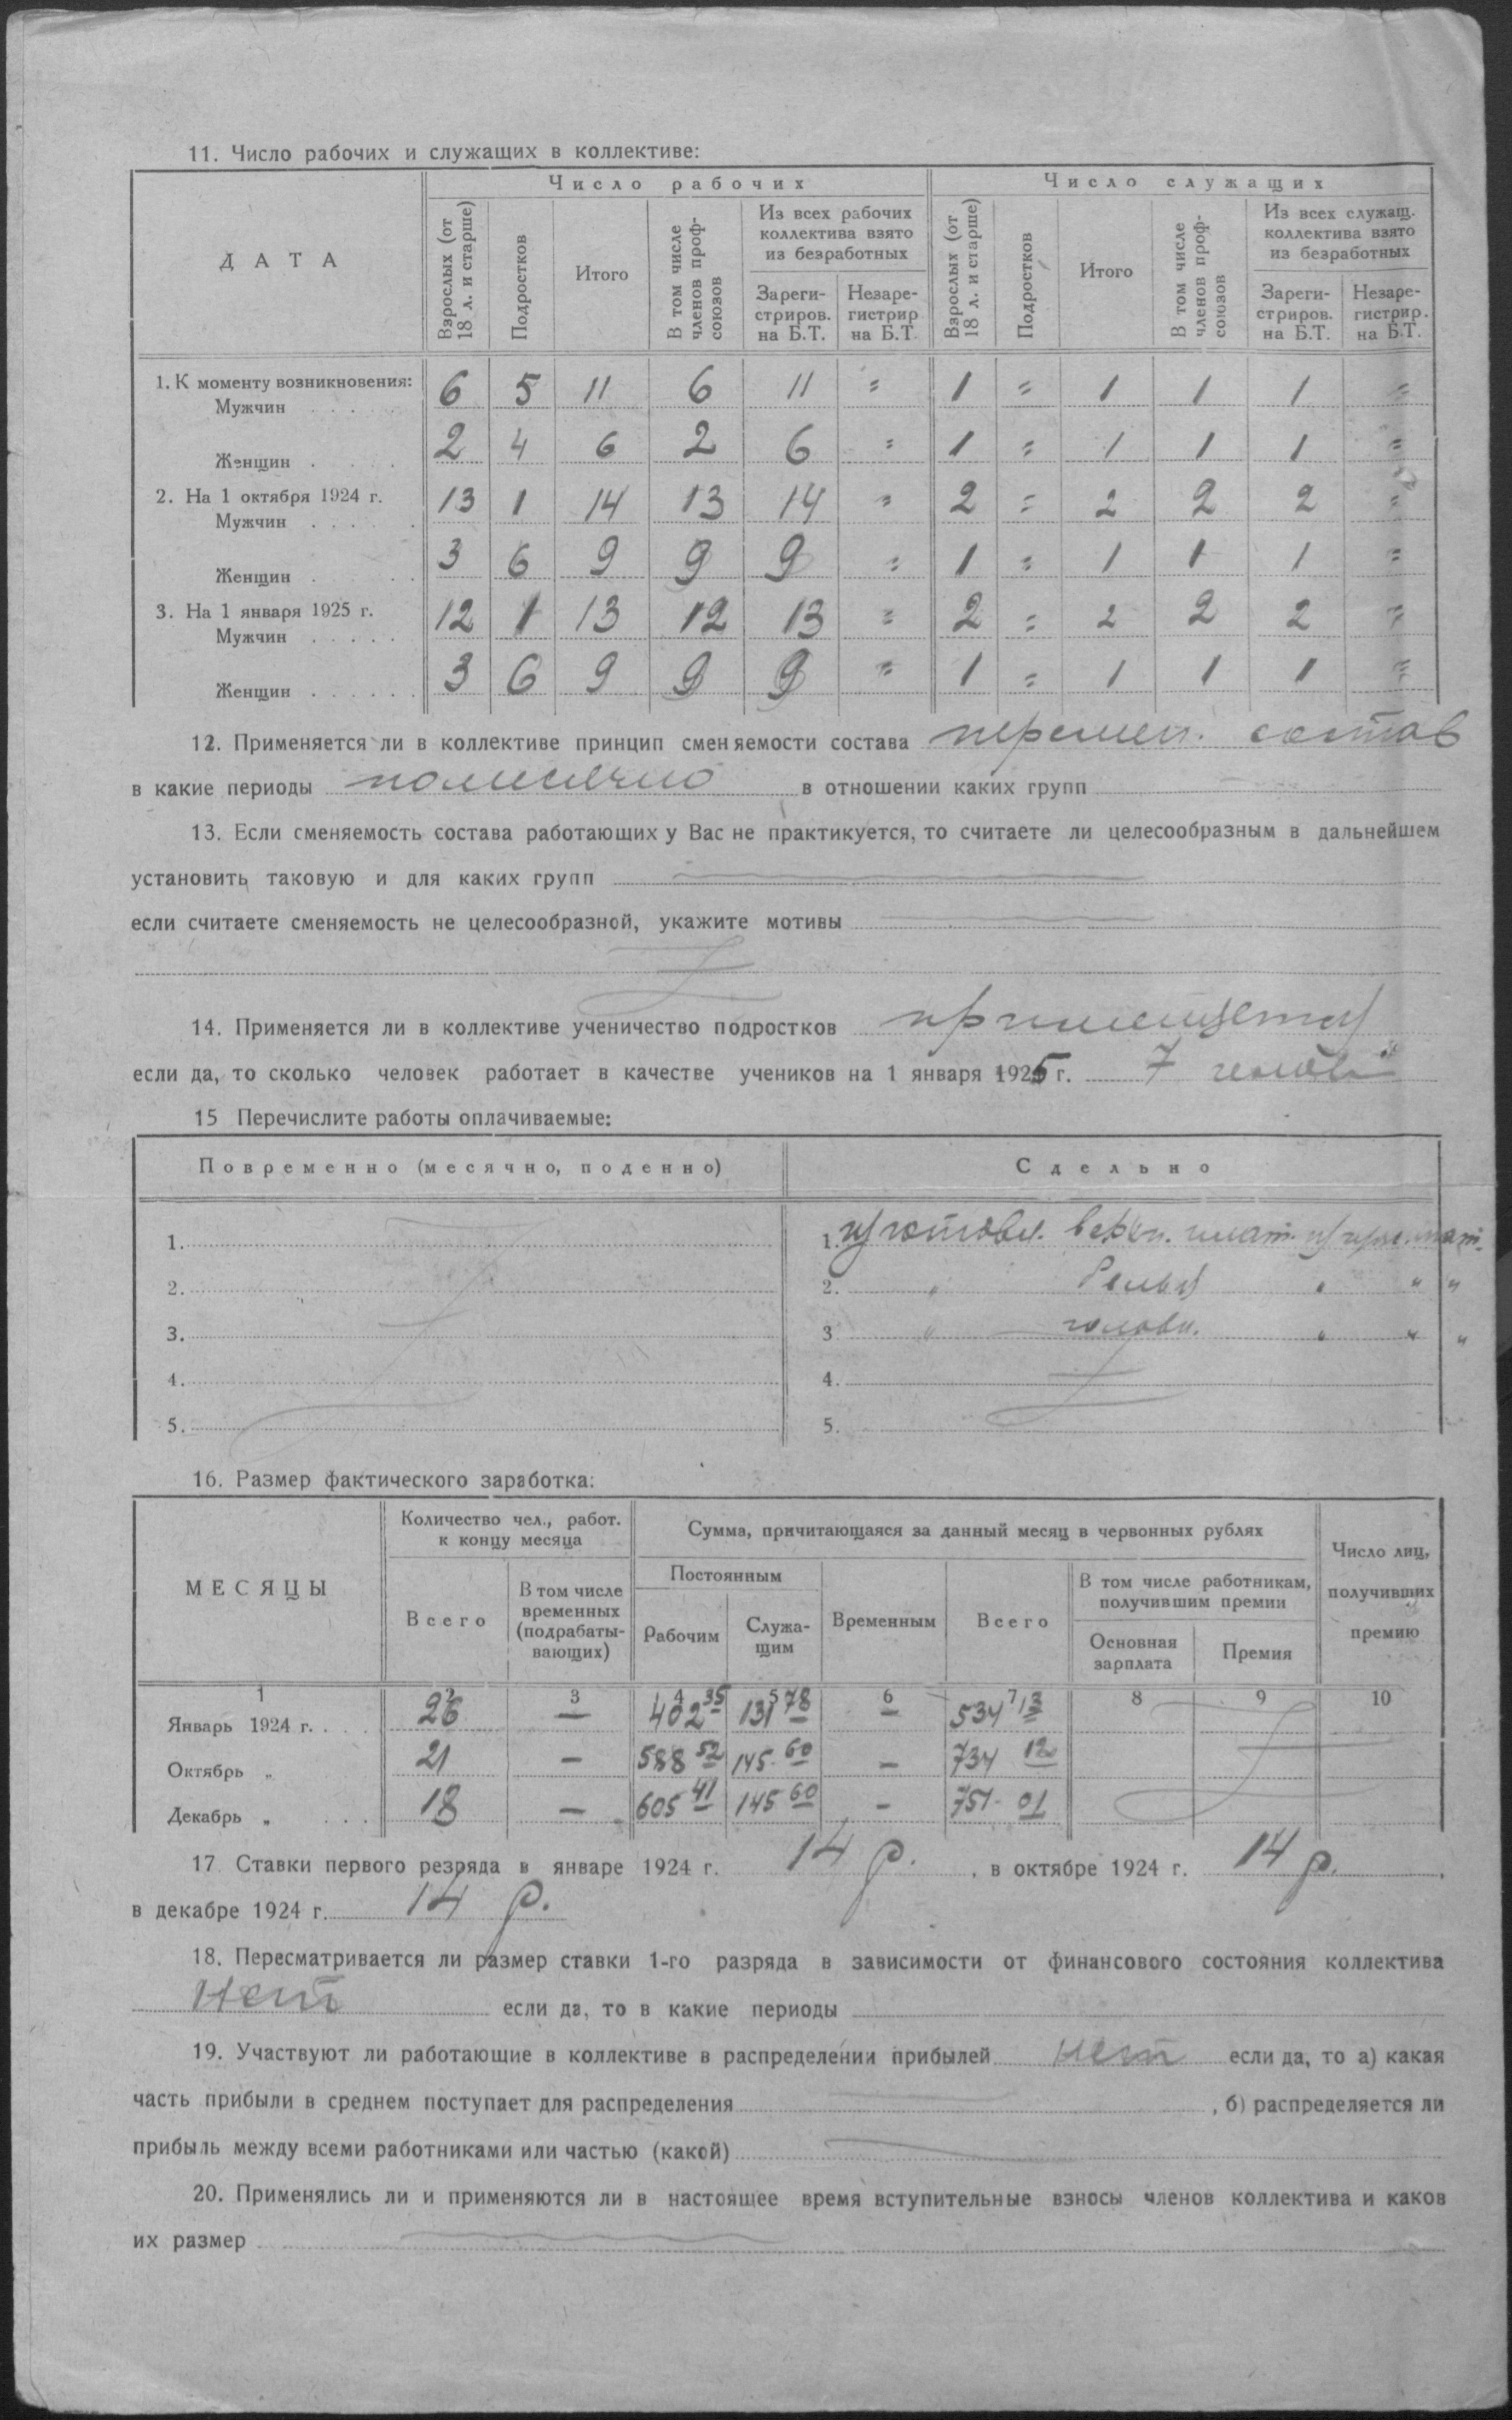 11. Число рабочих и служащих в коллективе:
ДАТА
Число рабочих
Число служащих
Взрослых (от 18 л. и старше)
Подростков
Итого
В том числе членов проф-союзов
Из всех рабочих коллектива взято из безработных
Зареги-стриров. на Б.Т.
Незаре-гистрир на Б.Т.
Взрослых (от 18 л. и старше)
Подростков
Итого
В том числе членов проф-союзов
Из всех служащ. коллектива взято из безработных
Зареги-стриров. на Б.Т.
Незаре-гистрир. на Б.Т.
1. К моменту возникновения:
Мужчин . . . . 6 5 11 6 11 = 1 = 1 1 1 =
Женщин . . . . 2 4 6 2 6 = 1 = 1 1 1 =
2. На 1 октября 1924 г.
Мужчин . . . . . 13 1 14 13 14 = 2 = 2 2 2 =
Женщин . . . 3 6 9 9 9 = 1 = 1 1 1 =
3. На 1 января 1925 г.
Мужчин . . . . . 12 1 13 12 13 = 2 = 2 2 2 =
Женщин . . . . . . 3 6 9 9 9 = 1 = 1 1 1 =
12. Применяется ли в коллективе принцип сменяемости состава перемен. состав
в какие периоды помесячно в отношении каких групп
13. Если сменяемость состава работающих у Вас не практикуется, то считаете ли целесообразным в дальнейшем
установить таковую и для каких групп
если считаете сменяемость не целесообразной, укажите мотивы
14. Применяется ли в коллективе ученичество подростков
если да, то сколько человек работает в качестве учеников на 1 января 1925 г. 7
15 Перечислите работы оплачиваемые:
Повременно (месячно, поденно)
Сдельно
1. 1. изготовл.
2. 2. " " " "
3. 3 " " " "
4. 4.
5. 5.
16. Размер фактического заработка:
МЕСЯЦЫ
Количество чел., работ. к концу месяца
Всего
В том числе временных (подрабаты-вающих)
Сумма, причитающаяся за данный месяц в червонных рублях
Постоянным
Рабочим
Служа-щим
Временным
Всего
В том числе работникам, получившим премии
Основная зарплата
Премия
Число лиц, получивших премию
1 2 3 4 5 6 7 8 9 10
Январь 1924 г. . . . 26 — 402 35 131 78 — 534 13
Октябрь „ 21 — 588 52 145 60 — 734 12
Декабрь „ . . . 18 — 605 41 145 60 — 751 01
17 Ставки первого резряда в январе 1924 г. 14 р. , в октябре 1924 г. 14 р. ,
в декабре 1924 г. 14 р.
18. Пересматривается ли размер ставки 1-го разряда в зависимости от финансового состояния коллектива
Нет если да, то в какие периоды
19. Участвуют ли работающие в коллективе в распределении прибылей нет если да, то а) какая
часть прибыли в среднем поступает для распределения , б) распределяется ли
прибыль между всеми работниками или частью (какой)
20. Применялись ли и применяются ли в настоящее время вступительные взносы членов коллектива и каков
их размер